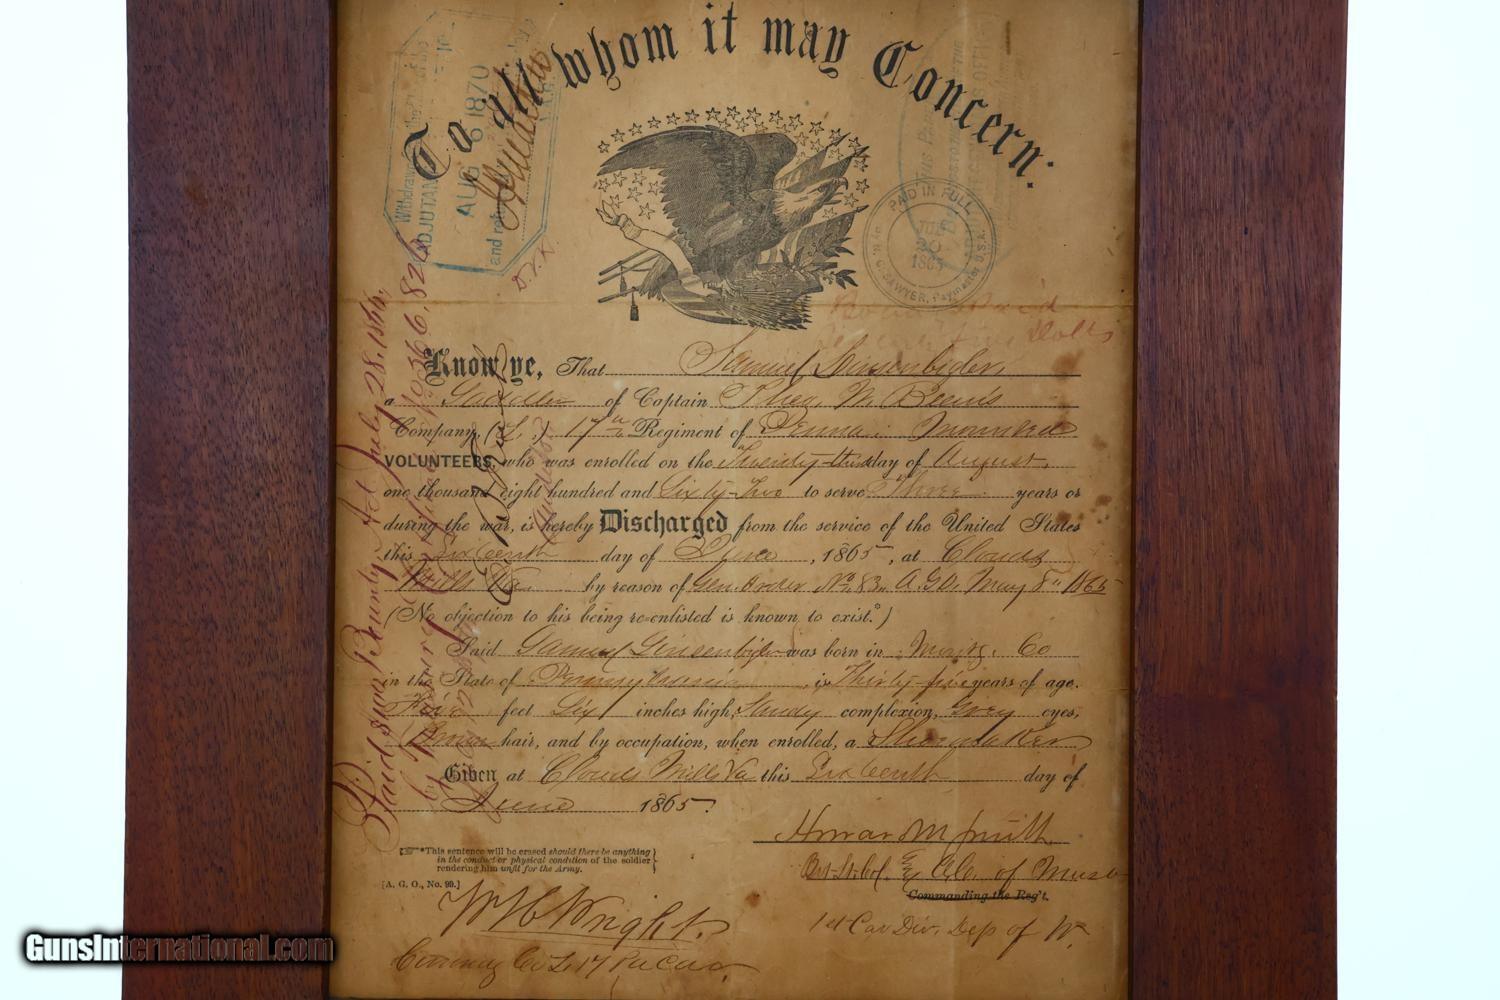 To all whom it may Concern:
Withdrawn
ADJUTAN
AUG 6 1870
and
D.V.K.
PAID IN FULL
20
1865
N. C. SAWYER, Paymaster U.S.A.
Paid
Dolls
Know ye, That Samuel
a Saddler of Captain Theo. M.
Company, (L.) 17th Regiment of Penna. Mounted
VOLUNTEERS, who was enrolled on the Twenty-third day of August,
one thousand eight hundred and Sixty-Two to serve Three years or
during the war, is hereby Discharged from the service of the United States
this Sixteenth day of June, 1865, at Clouds
Mills Va by reason of Gen. Order No. 83. A.G.O. May 8th 1865
(No objection to his being re-enlisted is known to exist.*)
Said Samuel Ginsenbigler was born in Co
in the State of Pennsylvania, is Thirty five years of age,
Five feet Six inches high, Sandy complexion, Grey eyes,
Brown hair, and by occupation, when enrolled, a Shoemaker
Given at Clouds Mills Va this Sixteenth day of
June 1865.
Paid Bounty Act July 28, 1866,
by
*This sentence will be erased should there be anything
in the conduct or physical condition of the soldier
rendering him unfit for the Army.
[A. G. O., No. 99.]
W H Wright.
Co L. 17 Pa Cav.
M Smith
Bvt. Lt. Col. & of Must
Commanding the Reg't.
1st Cav Div. Dep of W.
GunsInternational.com